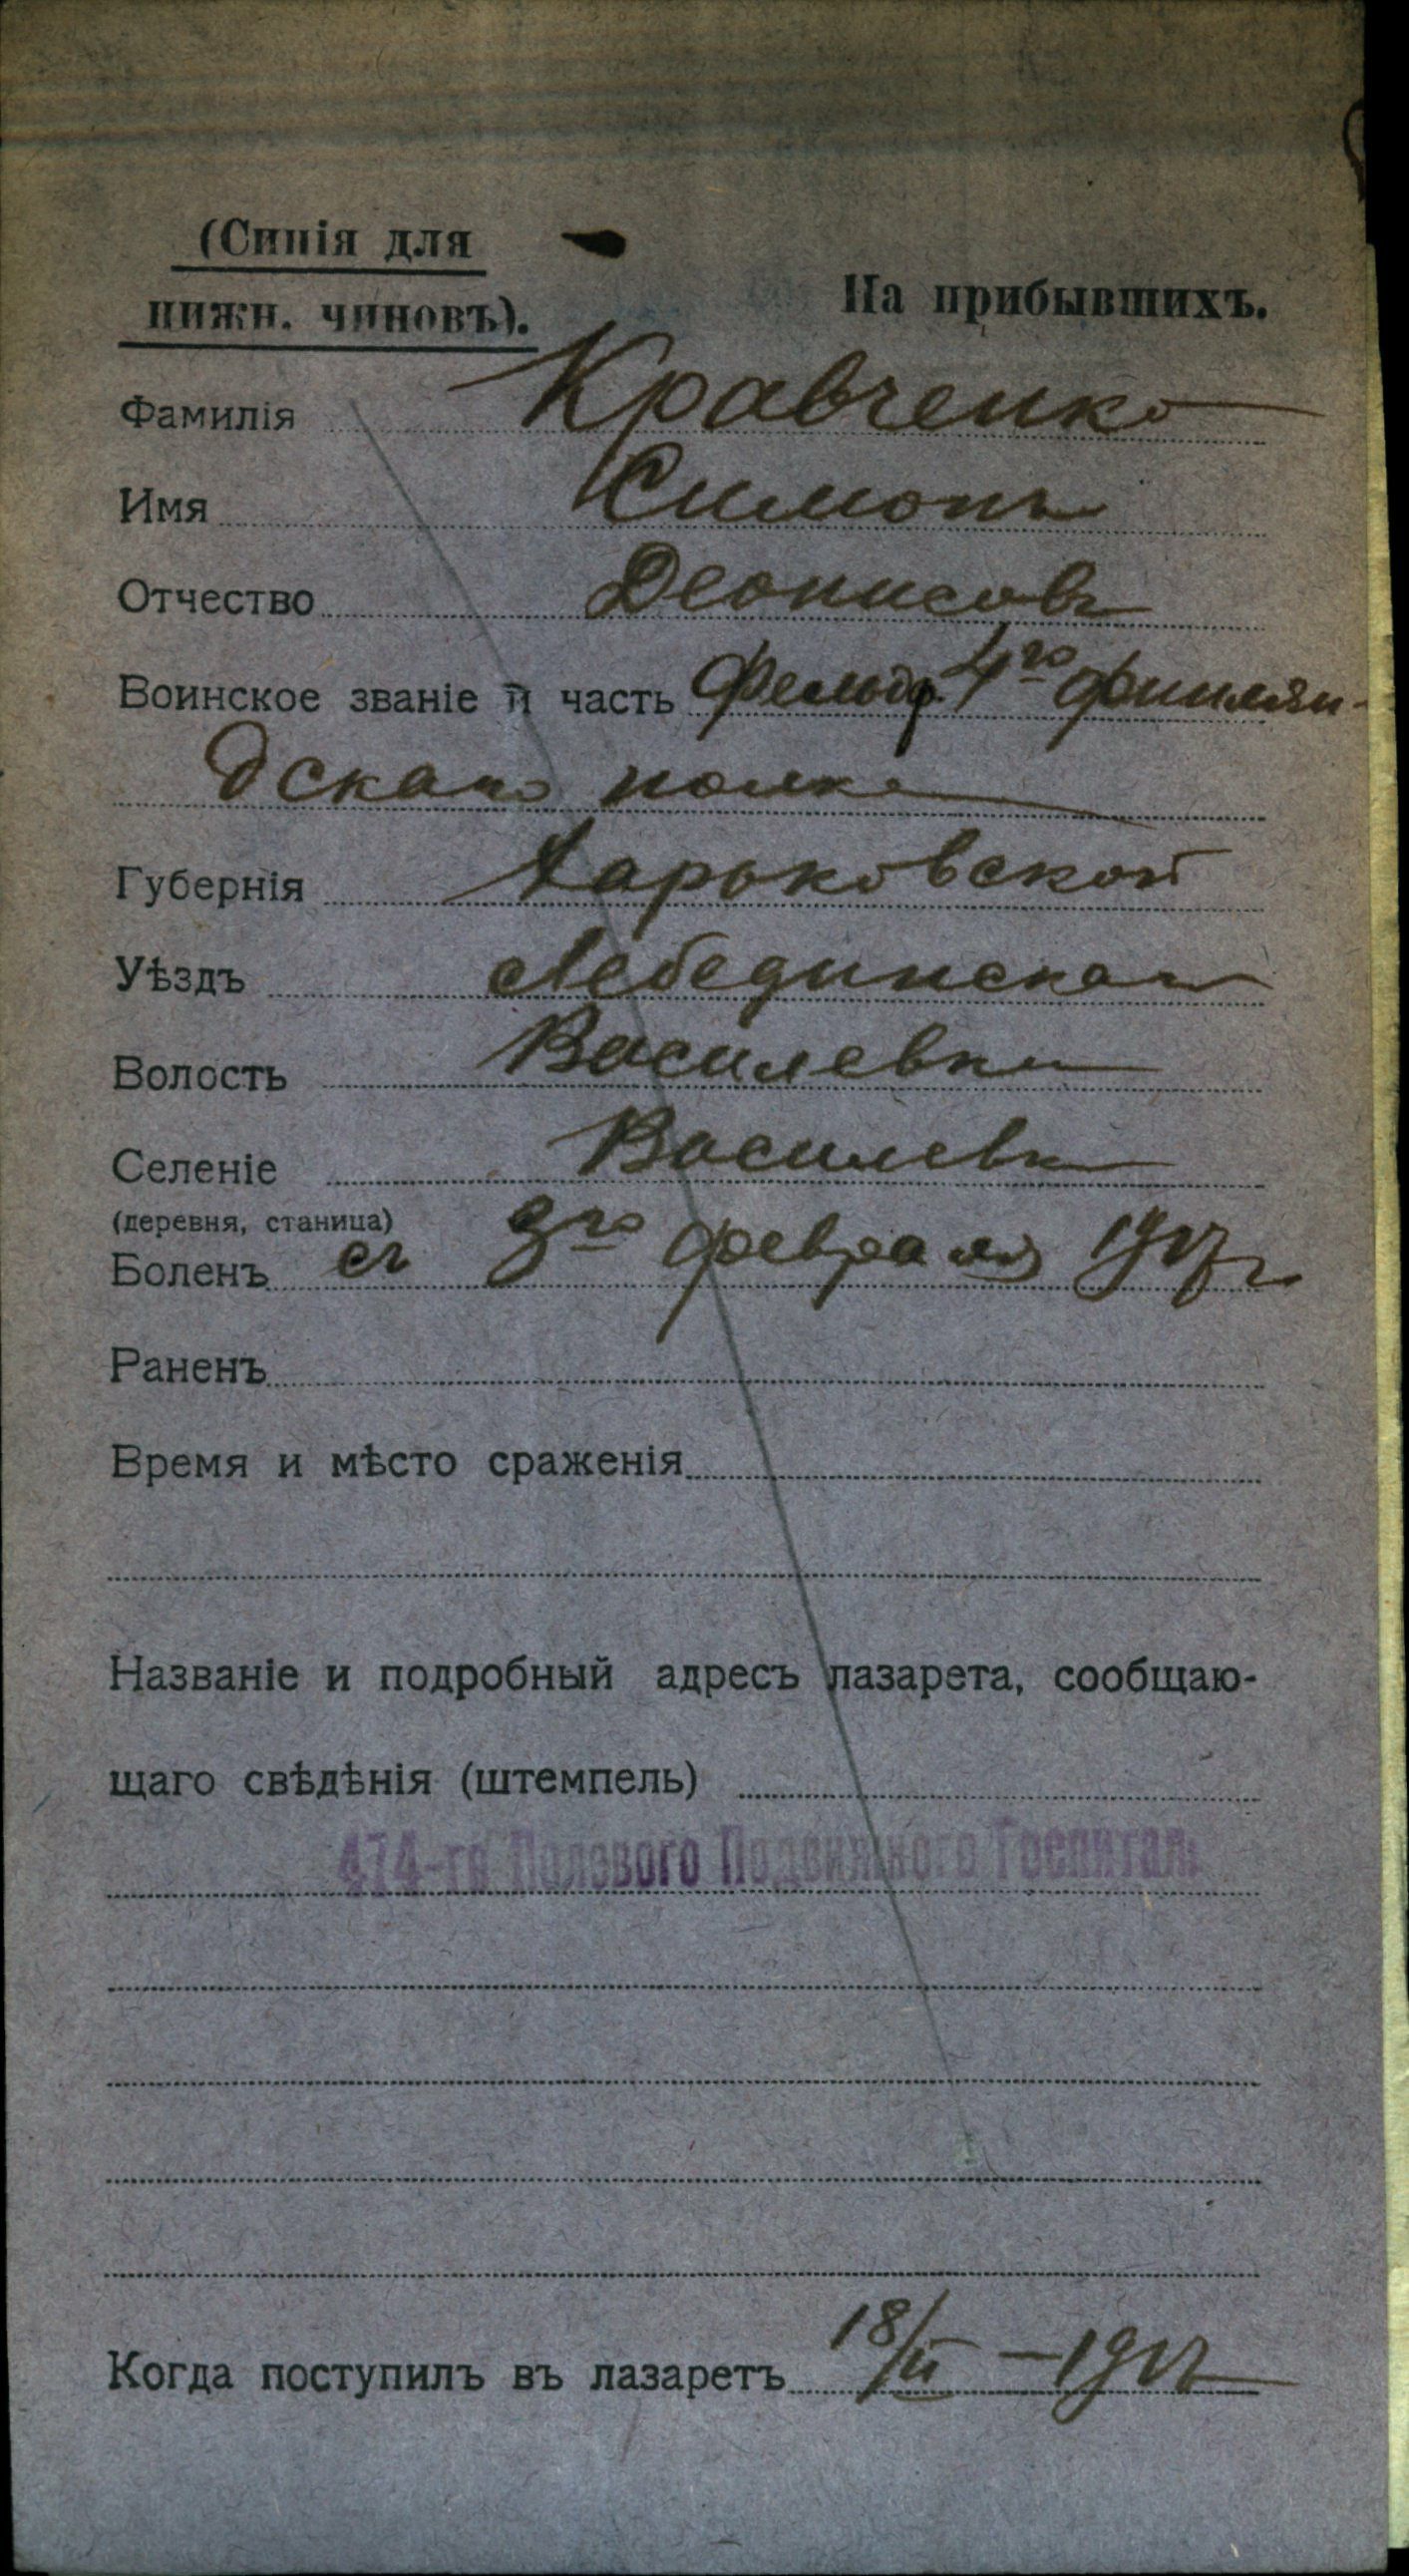 (Синія для
нижн. чиновъ).
На прибывшихъ.
Фамилія Кравченко
Имя Симонъ
Отчество Деонисовъ
Воинское званіе и часть Фельдф. 4го Финлян-
дскаго полка
Губернія Харьковской
Уѣздъ Лебединскаго
Волость Василевки
Селеніе Василевки
(деревня, станица)
Боленъ съ 9го февраля 1917 г
Раненъ
Время и мѣсто сраженія
Названіе и подробный адресъ лазарета, сообщаю-
щаго свѣдѣнія (штемпель)
474-го Полевого Подвижного Госпиталя
Когда поступилъ въ лазаретъ 18/II — 1917